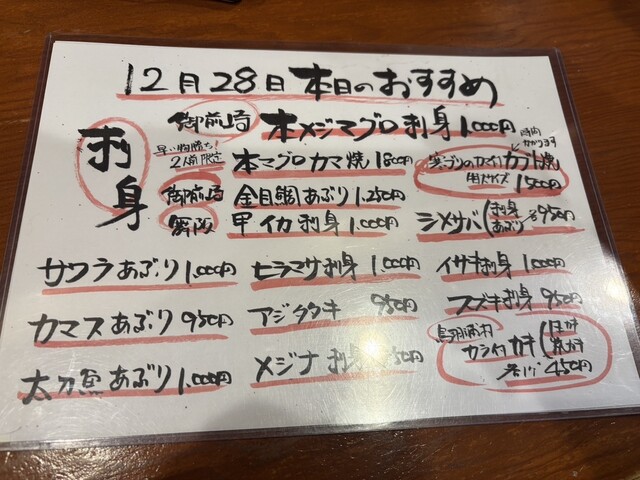 12月28日 本日のおすすめ
刺身
御前崎 本メジマグロ刺身 1,000円
早い物勝ち!
2人前限定 本マグロカマ焼 1800円
時間かかります
カブト焼
1500円
御前崎 金目鯛あぶり 1,250円
舞阪 甲イカ刺身 1,000円
シメサバ(刺身 あぶり 各950円
サワラあぶり 1,000円 ヒラマサ刺身 1,000円 イサキ刺身 1,000円
カマスあぶり 950円 アジタタキ 950円 スズキ刺身 950円
太刀魚あぶり 1,000円 メジナ刺身
鳥羽浦村
カラ付カキ
450円